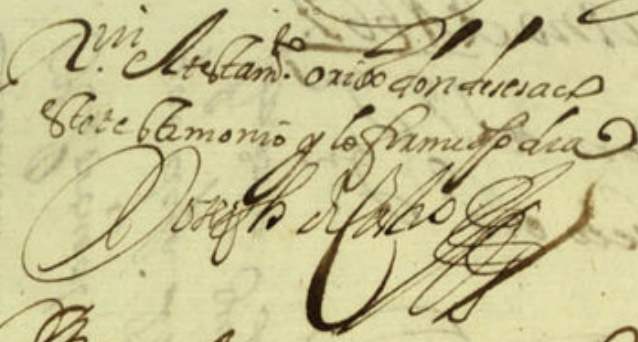 el testamto. orixl donde se saco
este testimonio y lo firme dho dia
Joseph de